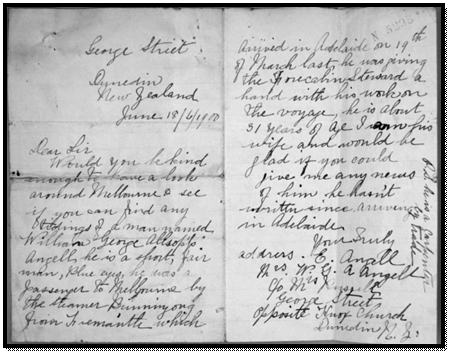 George Street
Dunedin
New Zealand
June 18/6/1900
Dear Sir
Would you be kind
enough to have a look
around Melbourne & see
if you can find any
tidings of a man named
William George Allsopp
Angell, he is a short, fair
man, Blue eyes, he was a
passenger to Melbourne by
the steamer Pinnyong
from Fremantle which
arrived in Adelaide on 19th
of March last, he was giving
the Forecabin Steward a
hand with his work on
the voyage, he is about
31 years of age I am his
wife and would be
glad if you could
give me any news
of him, he hasn't
written since arriving
in Adelaide
Yours Truly
address. E. Angell
Mrs W. G. A Angell
C/o Mrs
George Street
Opposite Knox Church
Dunedin N. Z.
a Carpenter
by trade